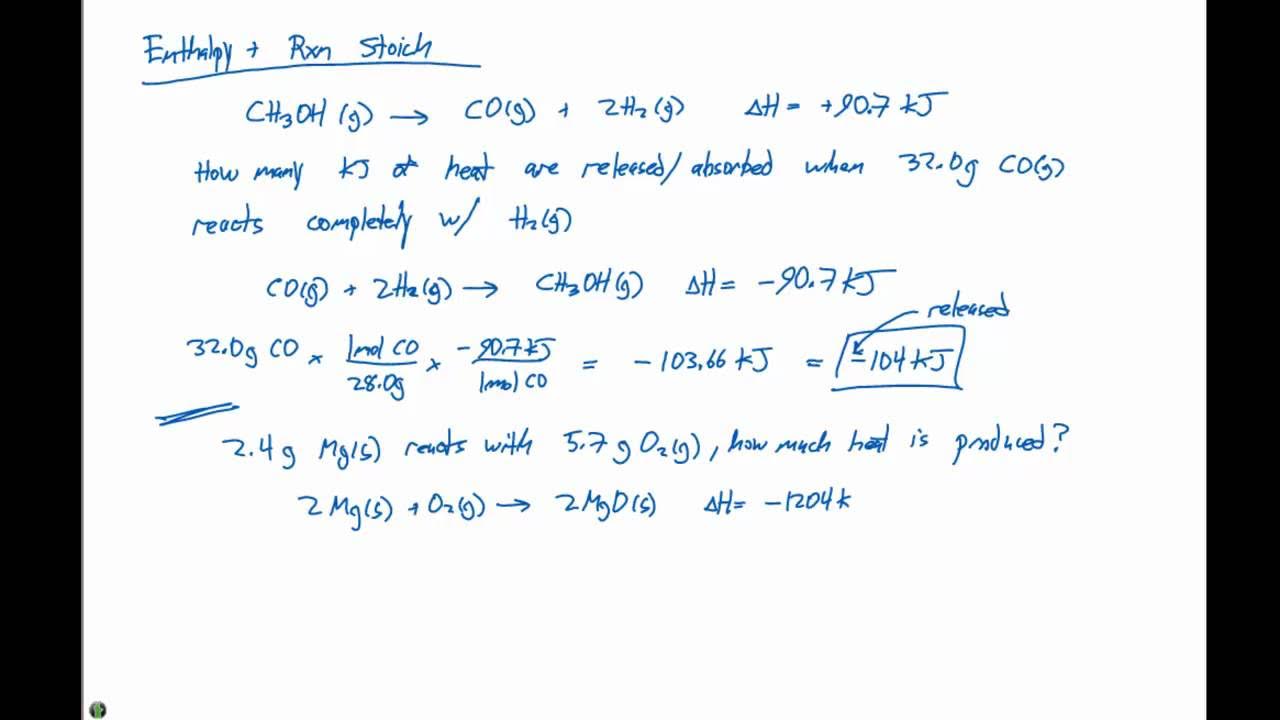 Enthalpy + Rxn Stoich
CH₃OH (g) → CO(g) + 2H₂(g) ΔH = +90.7 kJ
How many kJ of heat are released/absorbed when 32.0g CO(g)
reacts completely w/ H₂(g)
CO(g) + 2H₂(g) → CH₃OH(g) ΔH = -90.7 kJ
released
32.0g CO × 1mol CO/28.0g × -90.7 kJ/1mol CO = -103.66 kJ = -104 kJ
2.4g Mg(s) reacts with 5.7g O₂(g), how much heat is produced?
2Mg(s) + O₂(g) → 2MgO(s) ΔH = -1204 k